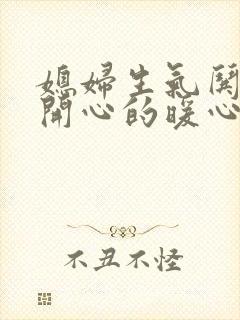 媳婦生氣
開心的暖心
不丑不怪